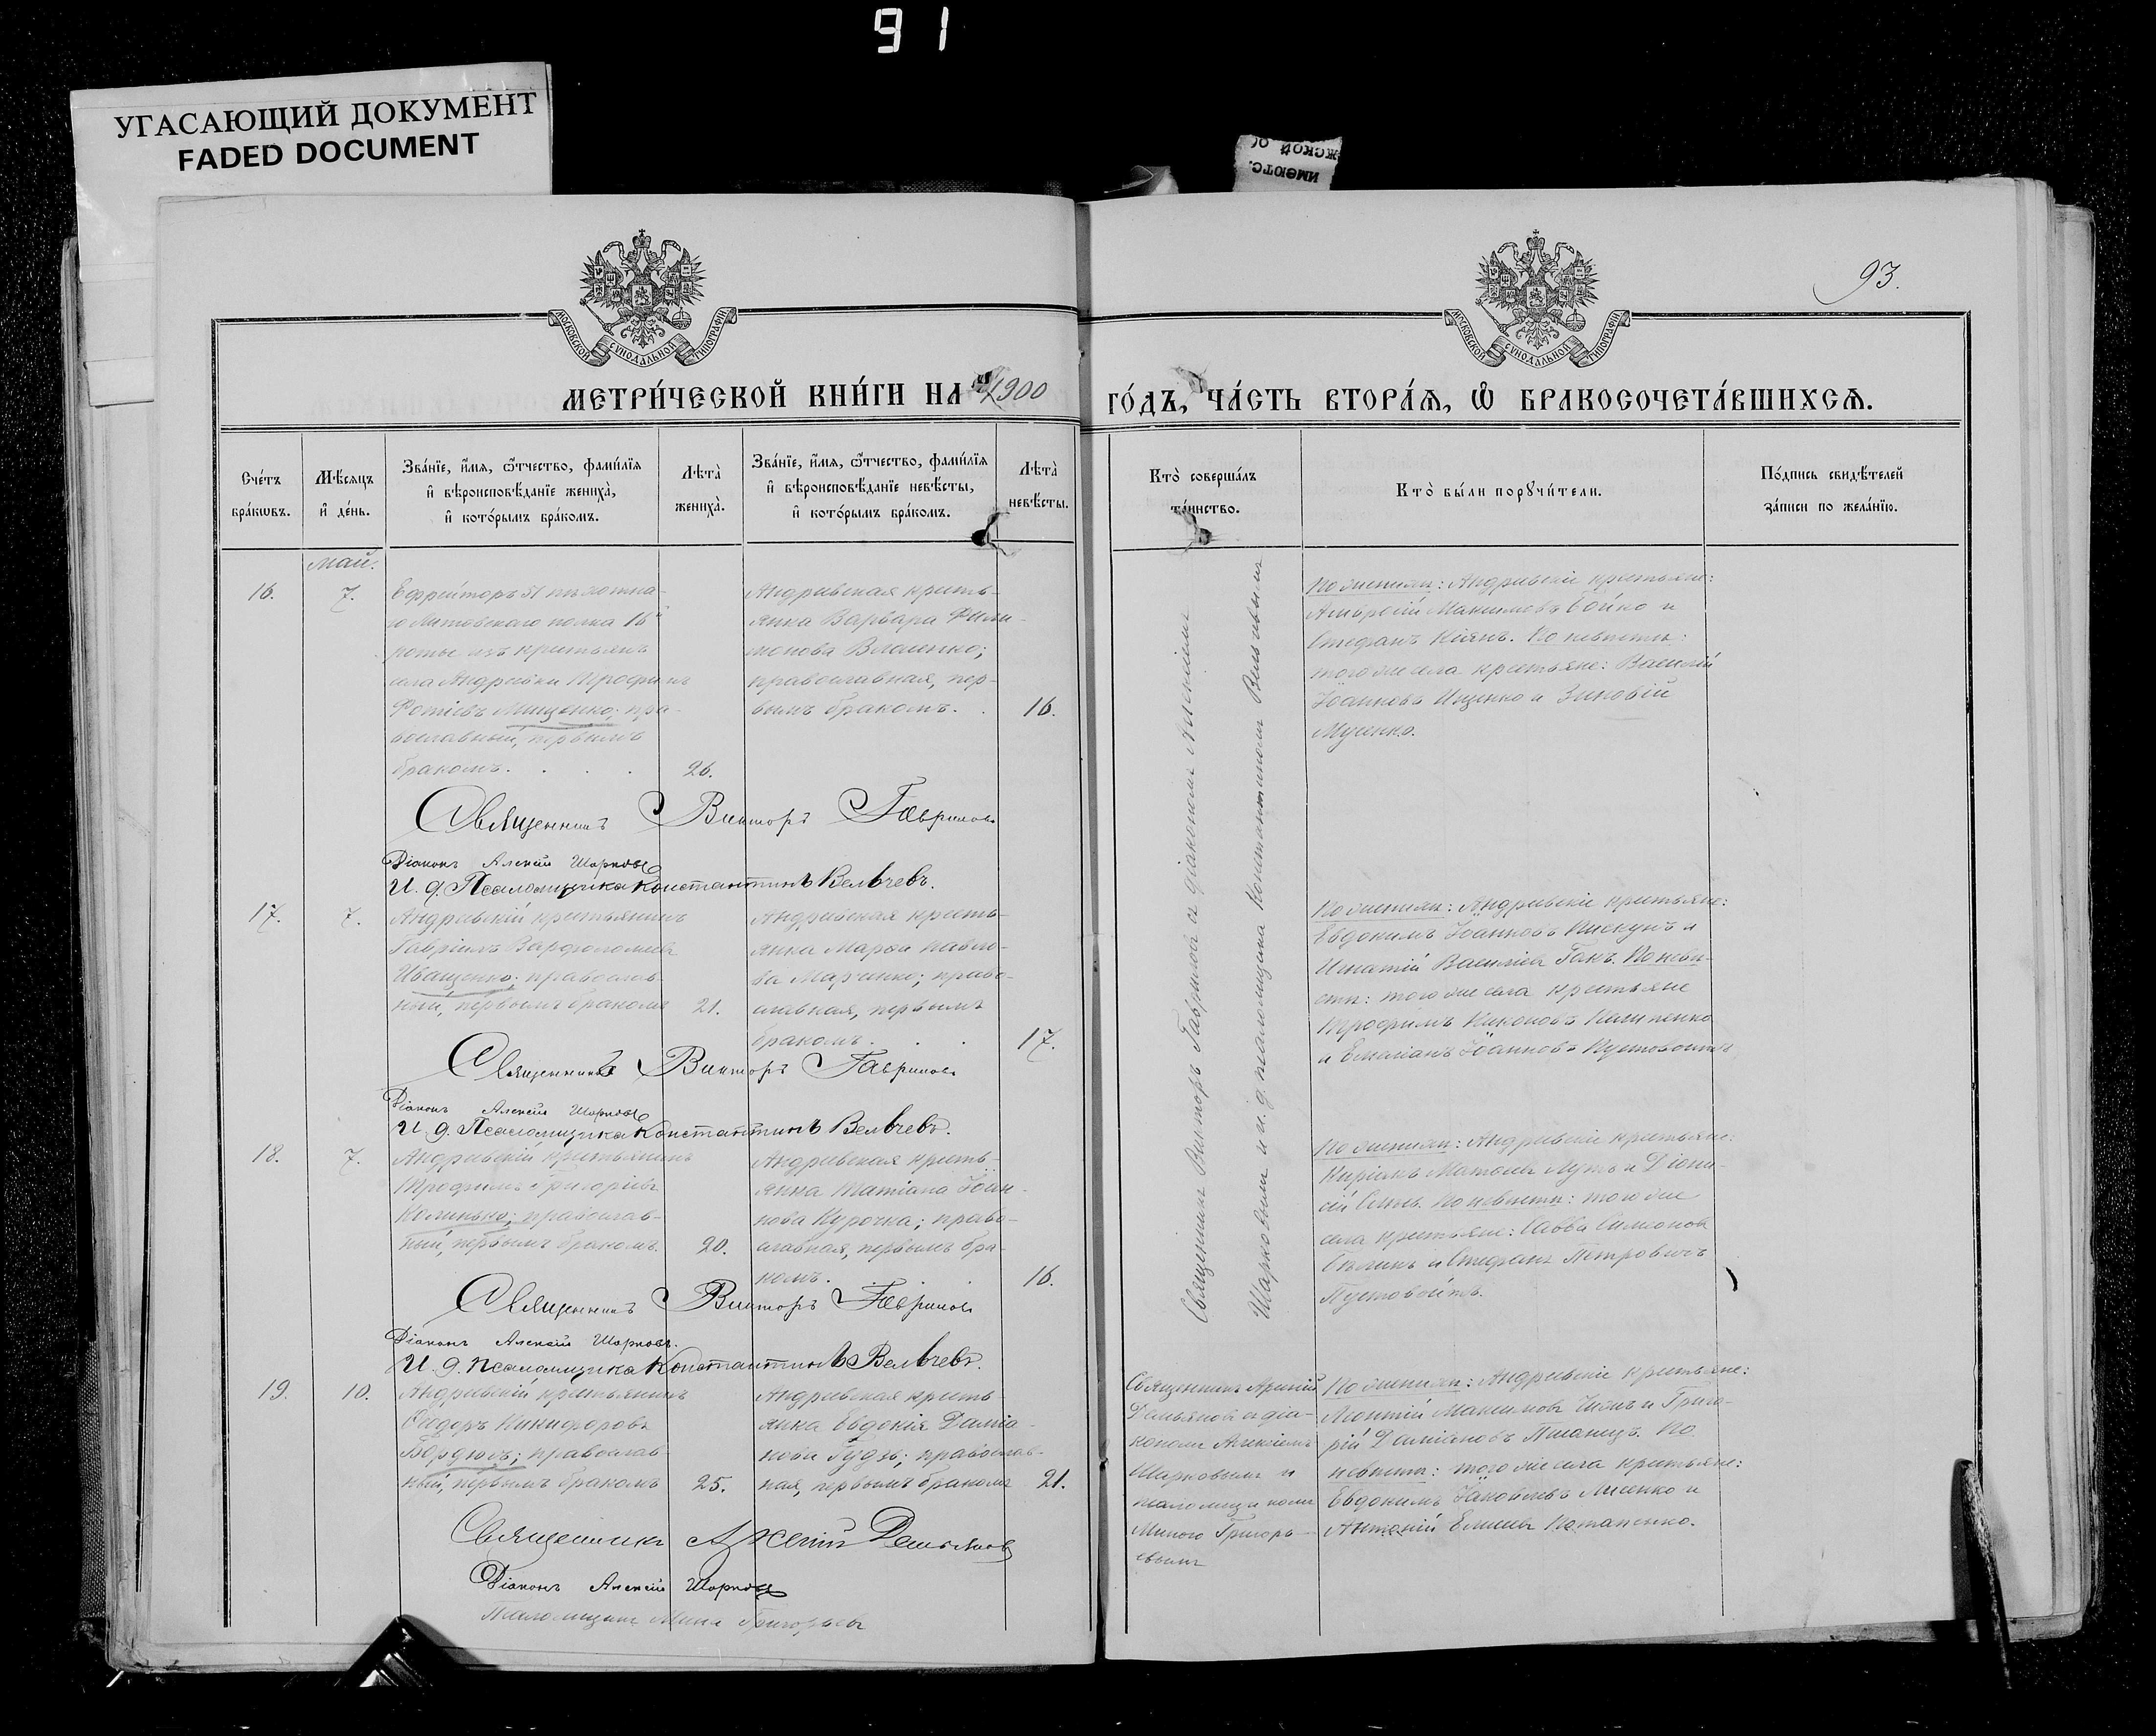 91
УГАСАЮЩИЙ ДОКУМЕНТ
FADED DOCUMENT
имеютс.
жской о
93.
МОСКОВСКОЙ СѴНОДАЛЬНОЙ ТИПОГРАФІИ
МОСКОВСКОЙ СѴНОДАЛЬНОЙ ТИПОГРАФІИ
МЕТРИ́ЧЕСКОЙ КНИ́ГИ НА 1900 ГО́ДЪ, ЧА́СТЬ ВТОРА́Ѧ, Ѡ БРАКОСОЧЕТА́ВШИХСѦ.
Сче́тъ бра́кѡвъ.
Мѣ́сѧцъ и҆ де́нь.
Зва́нїе, и҆́мѧ, ѻ҆́тчество, фами́лїѧ
и҆ вѣроисповѣ́данїе жениха̀,
и҆ кото́рымъ бра́комъ.
Лѣта̀ жениха̀.
Зва́нїе, и҆́мѧ, ѻ҆́тчество, фами́лїѧ
и҆ вѣроисповѣ́данїе невѣ́сты,
и҆ кото́рымъ бра́комъ.
Лѣта̀ невѣ́сты.
Кто̀ соверша́лъ та́инство.
Кто̀ бы́ли порꙋчи́тели.
По́дпись свидѣ́телей за́писи по жела́нїю.
май.
16.
7.
Ефрейторъ 51 пѣхотна-
го Литовскаго полка 16й
роты изъ крестьянъ
села Андреевки Трофимъ
Фотіевъ Мищенко; пра-
вославный, первымъ
бракомъ.
26.
Андреевская кресть-
янка Варвара Фили-
монова Власенко;
православная, пер-
вымъ бракомъ.
16.
По женихѣ: Андреевскіе крестьяне:
Амвросій Максимовъ Бойко и
Стефанъ Кіянъ. По невѣстѣ:
того же села крестьяне: Василій
Іоанновъ Ищенко и Зиновій
Мусенко.
Священникъ Викторъ Гавриловъ
Діаконъ Алексій Шарковъ
И. д. Псаломщика Константинъ Вельчевъ.
17.
7.
Андреевскій крестьянинъ
Гавріилъ Варфоломеевъ
Иващенко; православ-
ный, первымъ бракомъ
21.
Андреевская кресть-
янка Марфа Павло-
ва Марченко; право-
славная, первымъ
бракомъ.
17.
По женихѣ: Андреевскіе крестьяне:
Евдокимъ Іоанновъ Пискунъ и
Игнатій Васильевъ Гакъ. По невѣ-
стѣ: того же села крестьяне
Трофимъ Никоновъ
и Емиліанъ Іоанновъ Пустовойтъ
Священникъ Викторъ Гавриловъ
Діаконъ Алексій Шарковъ
И. д. Псаломщика Константинъ Вельчевъ.
18.
7.
Андреевскій крестьянинъ
Трофимъ Григоріевъ
православ-
ный, первымъ бракомъ.
20.
Андреевская кресть-
янка Татіана Іоан-
нова Курочка; право-
славная, первымъ бра-
комъ.
16.
По женихѣ: Андреевскіе крестьяне:
Киріакъ и Діони-
сій По невѣстѣ: того же
села крестьяне: Савва Симеоновъ
и Стефанъ Петровичъ
Пустовойтъ.
Священникъ Викторъ Гавриловъ
Діаконъ Алексій Шарковъ.
И. д. псаломщика Константинъ Вельчевъ.
Священникъ Викторъ Гавриловъ съ діакономъ Алексіемъ
Шарковымъ и и. д. псаломщика Константиномъ Вельчевымъ
19.
10.
Андреевскій крестьянинъ
Ѳеодоръ Никифоровъ
Бордюгъ; православ-
ный, первымъ бракомъ
25.
Андреевская кресть-
янка Евдокія Даміа-
нова Гудзь; православ-
ная, первымъ бракомъ
21.
Священникъ Арсеній
Демьяновъ съ діа-
кономъ Алексіемъ
Шарковымъ и
псаломщикомъ
Миною Григорь-
евымъ
По женихѣ: Андреевскіе крестьяне:
Леонтій Максимовъ и Григо-
рій Даміановъ По
невѣстѣ: того же села крестьяне:
Евдокимъ Іаковлевъ Лисенко и
Антоній Елисеевъ Потапенко.
Священникъ Арсеній Демьяновъ
Діаконъ Алексій Шарковъ
Псаломщикъ Мина Григорьевъ